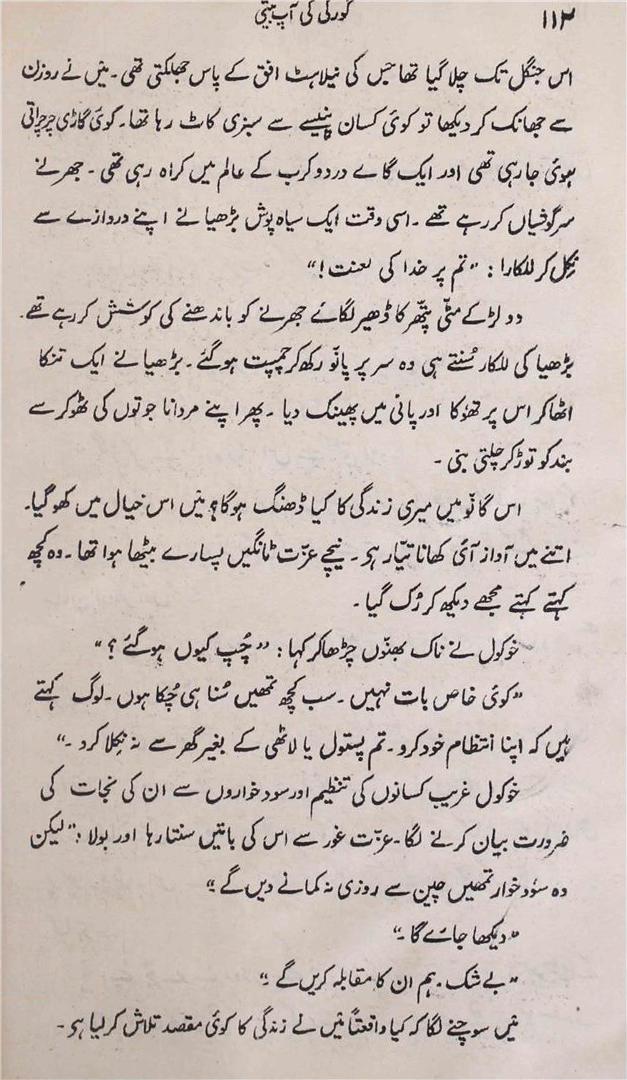 ۱۱۲
گورکی کی آپ بیتی
اس جنگل تک چلا گیا تھا جس کی نیلاہٹ افق کے پاس جھلکتی تھی۔ میں نے روزن
سے جھانک کر دیکھا تو کوئی کسان ہنسیے سے سبزی کاٹ رہا تھا۔ کوئی گاڑی چرچراتی
ہوئی جا رہی تھی اور ایک گاے درد و کرب کے عالم میں کراہ رہی تھی۔ جھرنے
سرگوشیاں کر رہے تھے۔ اسی وقت ایک سیاہ پوش بڑھیا نے اپنے دروازے سے
نکل کر للکارا: "تم پر خدا کی لعنت!"
دو لڑکے مٹّی پتھّر کا ڈھیر لگائے جھرنے کو باندھنے کی کوشش کر رہے تھے۔
بڑھیا کی للکار سُنتے ہی وہ سر پر پانْو رکھ کر چمپت ہو گئے۔ بڑھیا نے ایک تنکا
اٹھا کر اس پر تھوٗکا اور پانی میں پھینک دیا۔ پھر اپنے مردانا جوتوں کی ٹھوکر سے
بند کو توڑ کر چلتی بنی۔
اس گانْو میں میری زندگی کا کیا ڈھنگ ہوگا؟ میں اس خیال میں کھو گیا۔
اتنے میں آواز آئی کھانا تیّار ہو۔ نیچے عزّت ٹانگیں پسارے بیٹھا ہوا تھا۔ وہ کچھ
کہتے کہتے مجھے دیکھ کر رُک گیا۔
خوکول نے ناک بھنوّں چڑھا کر کہا: "چُپ کیوں ہو گئے؟"
"کوئی خاص بات نہیں۔ سب کچھ تمھیں سُنا ہی چُکا ہوں۔ لوگ کہتے
ہیں کہ اپنا انتظام خود کرو۔ تم پستول یا لاٹھی کے بغیر گھر سے نہ نِکلا کرو۔"
خوکول غریب کسانوں کی تنظیم اور سود خواروں سے ان کی نجات کی
ضرورت بیان کرنے لگا۔ عزّت غور سے اس کی باتیں سنتا رہا اور بولا: "لیکن
وہ سوٗد خوار تمھیں چین سے روزی نہ کمانے دیں گے۔"
"دیکھا جاے گا۔"
"بے شک۔ ہم ان کا مقابلہ کریں گے۔"
میں سوچنے لگا کہ کیا واقعتاً میں نے زندگی کا کوئی مقصد تلاش کر لیا ہو۔